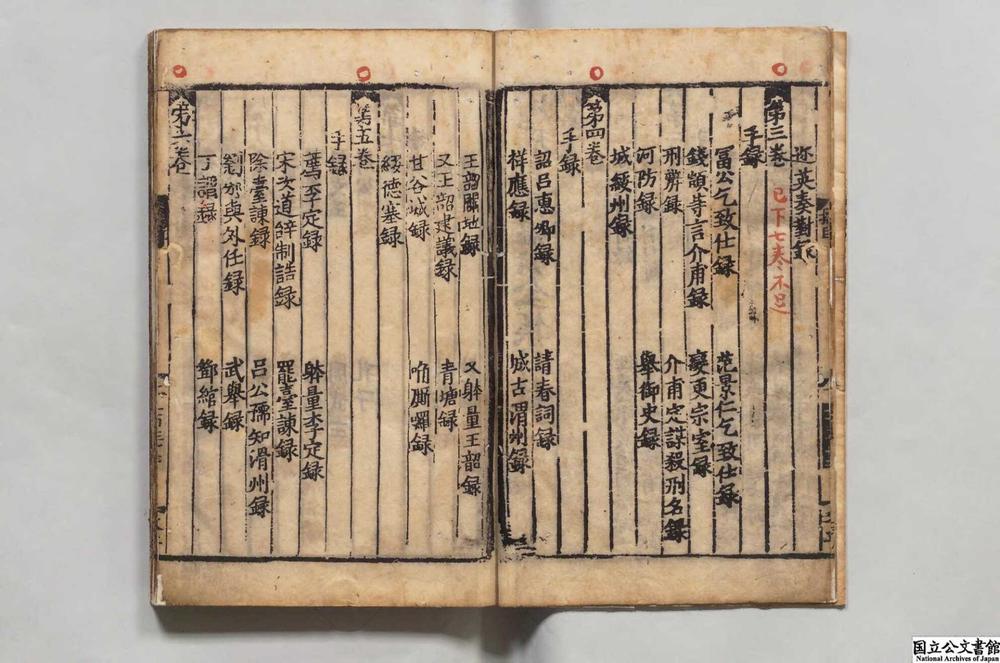 迩英奏對録
第三卷 已下七卷不足
手録
冨公乞致仕録 范景仁乞致仕録
錢顗等言介甫録 變更宗室録
刑獘録 介甫定謀殺刑名録
河防録 舉御史録
城綏州録
第四卷
手録
詔吕惠卿録 請春詞録
祥應録 城古渭州録
王韶闢地録 又躰量王韶録
又王韶建議録 青塘録
甘谷城録 唃厮囉録
綏徳塞録
第五卷
手録
薦李定録 躰量李定録
宋次道辝制誥録 罷臺諫録
除臺諫録 吕公孺知滑州録
劉與外任録 武舉録
丁詔録 鄧綰録
第六卷
国立公文書館
National Archives of Japan